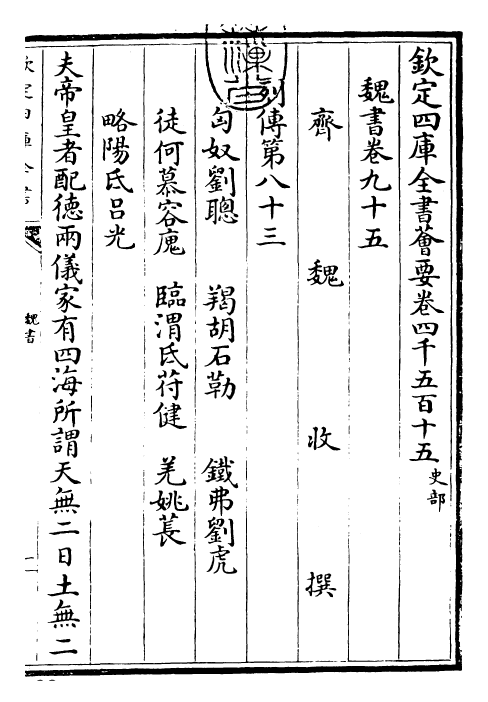 欽定四庫全書薈要卷四千五百十五 史部
魏書卷九十五
齊 魏 收 撰
列傳第八十三
匈奴劉聰 羯胡石勒 鐵弗劉虎
徒何慕容廆 臨渭氐苻健 羌姚萇
略陽氐呂光
夫帝皇者配德兩儀家有四海所謂天無二日土無二
魏書